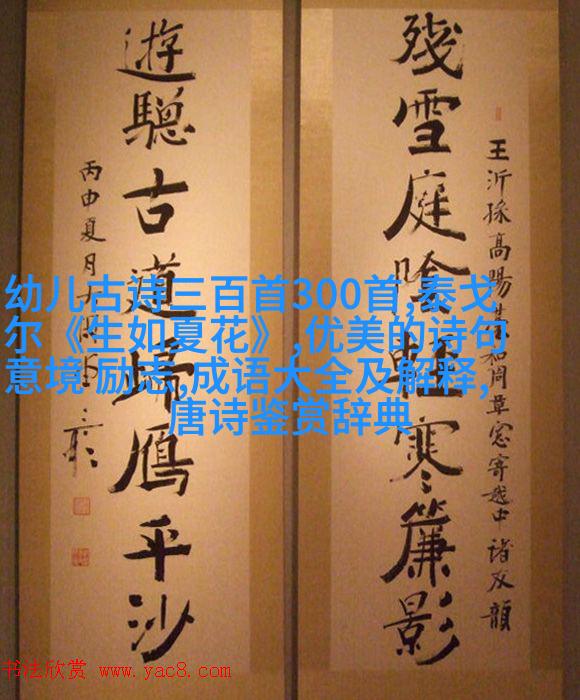 殘雪庭陰輕寒簾影
王沂孫高陽臺和周草窓寄越中諸友韻
遊驄古道歸鴈平沙
丙申夏月
幼儿古诗三百首300首,泰戈
尔《生如夏花》,优美的诗句
意境 励志,成语大全及解释,
唐诗鉴赏辞典
书法欣赏 www.yac8.com